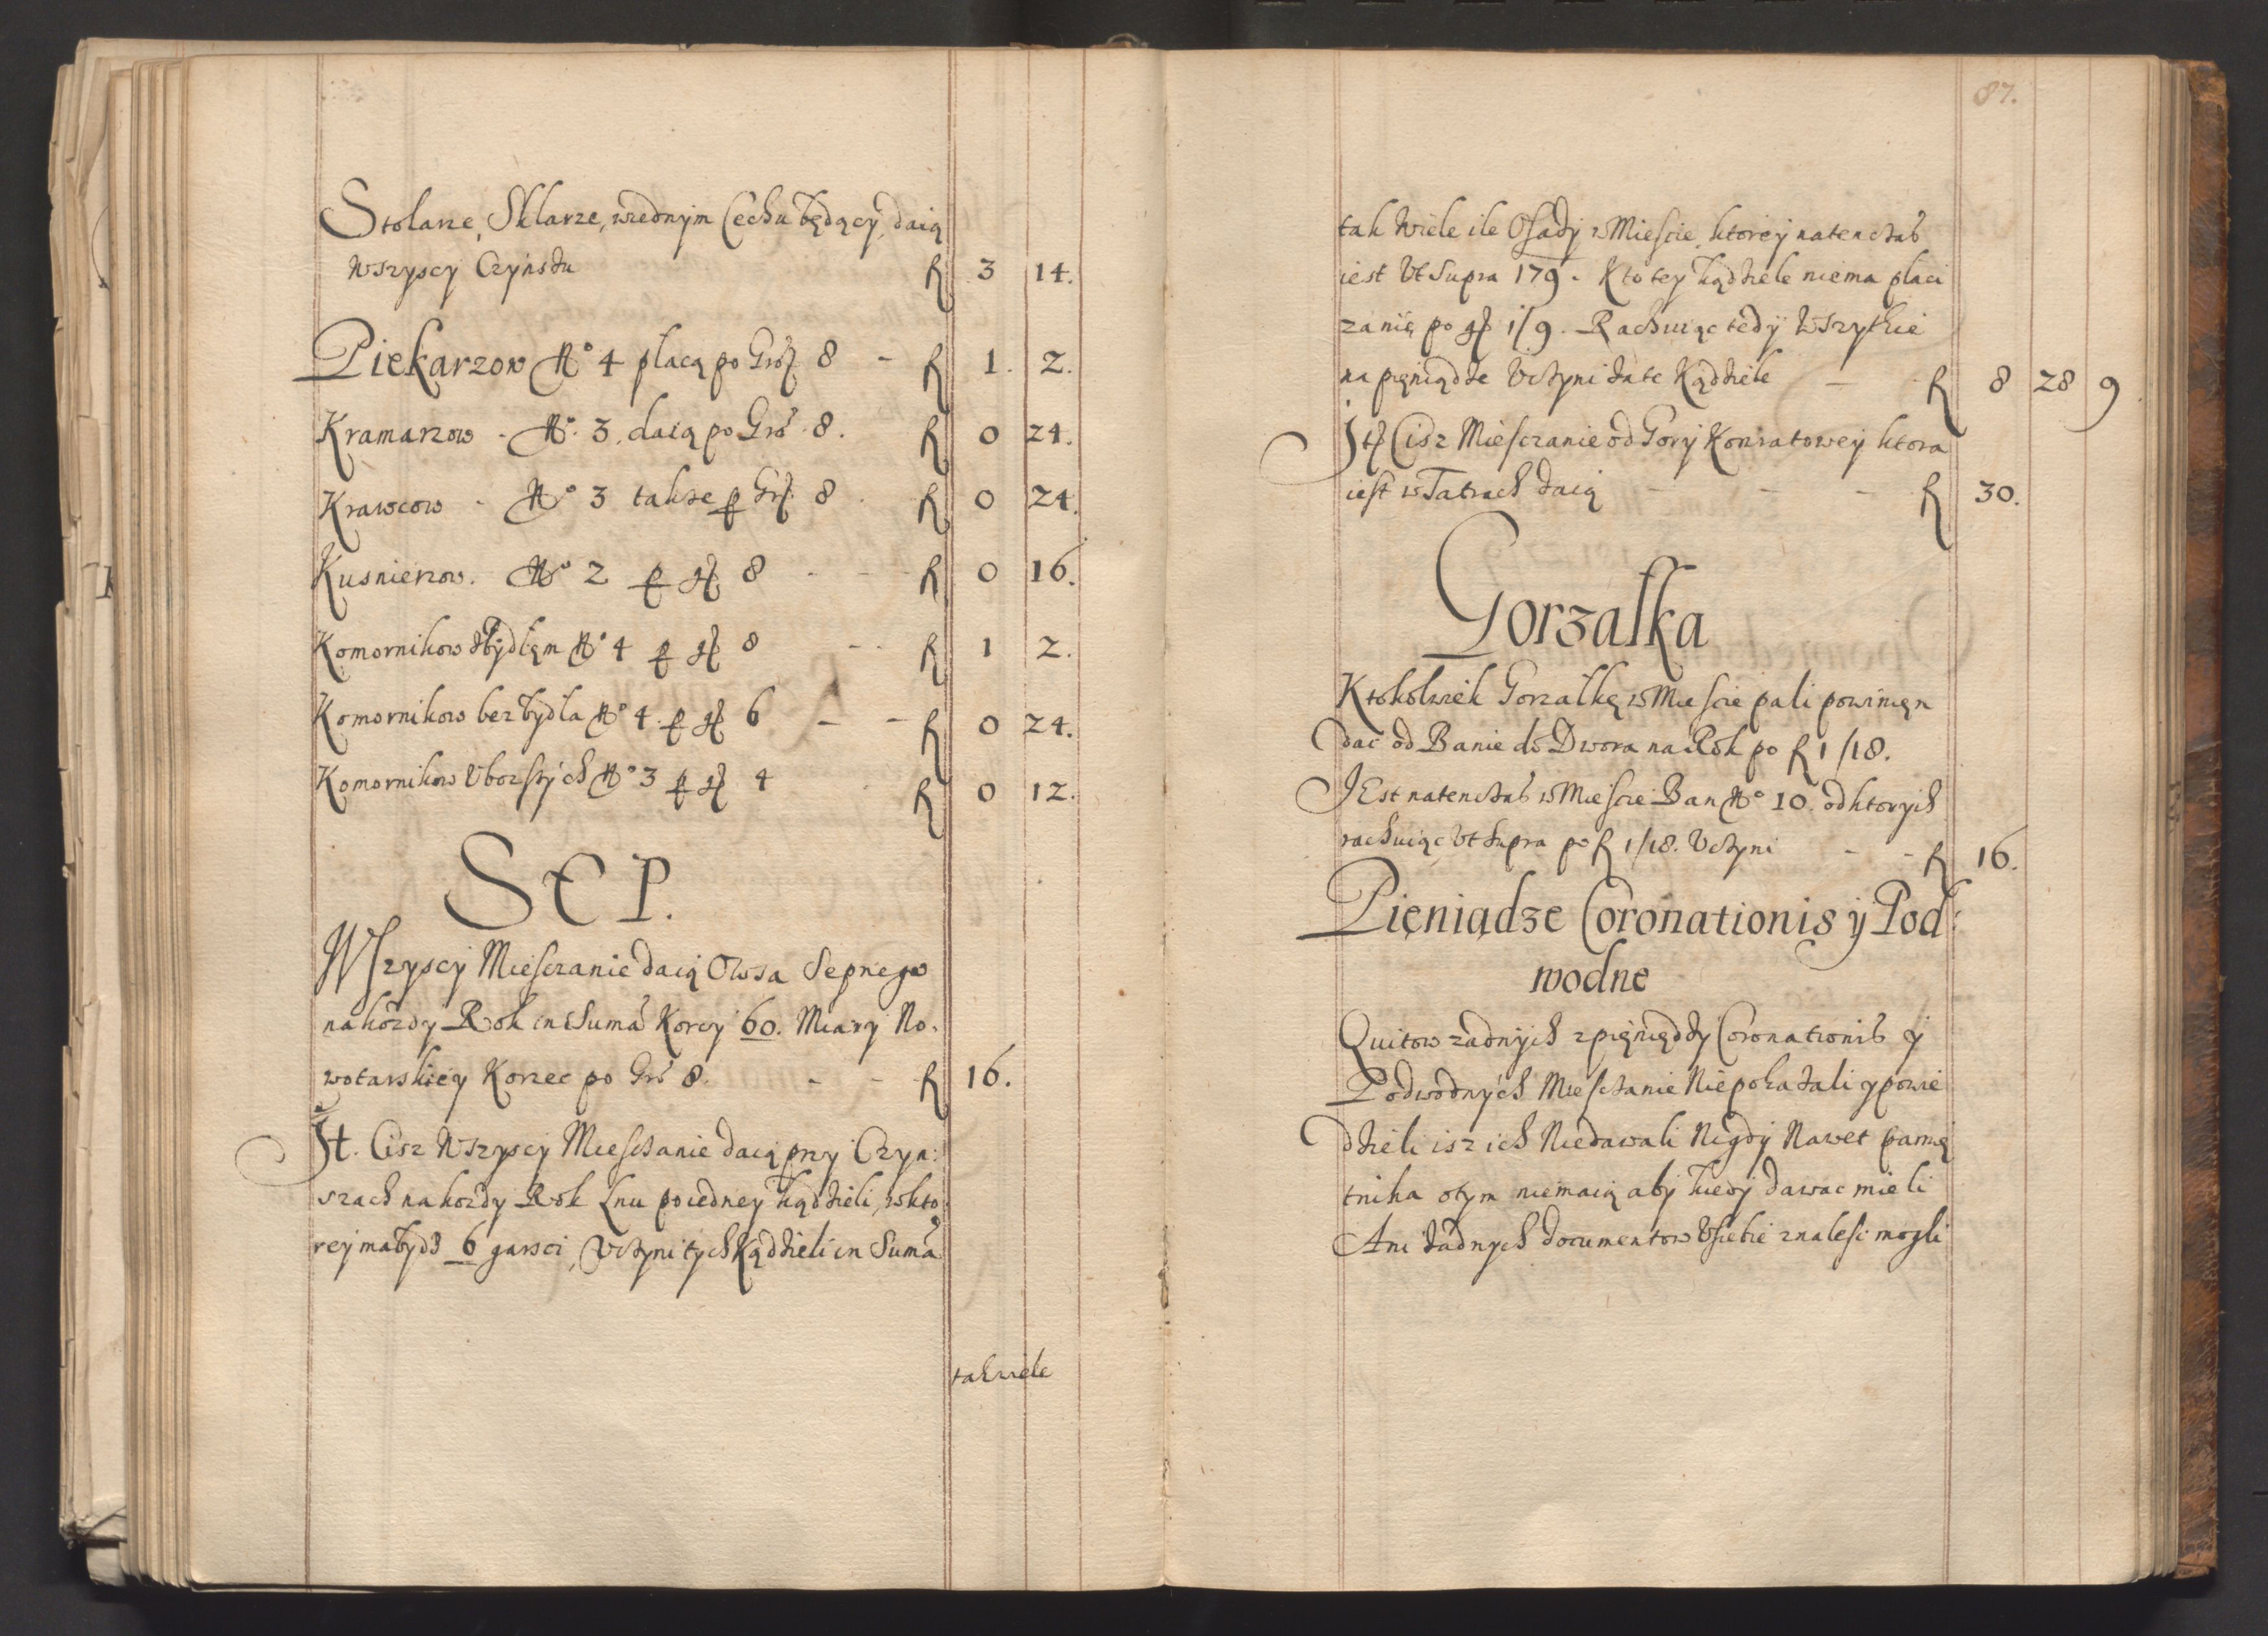 Stolarze, Sklarze, wiednym Cechu będący, daią
Wszyscy Czynszu f 3 14.
Piekarzow No 4 placą po Grosz 8 - f 1. 2.
Kramarzow - No. 3. daią po Gro. 8. f 0 24.
Krawcow - No 3 takze p Gr 8 f 0 24.
Kusnierzow. No 2 p gr 8 - - f 0 16.
Komornikow zbydłęm No 4 p gr 8 - - f 1 2.
Komornikow bez bydła No 4. p gr 6 - - f 0 24.
Komornikow Vbozszych No 3 p gr 4 f 0 12.
SEP.
Wszyscy Miesczanie daią Owsa Sepnego
na kozdy Rok in Suma Korcy 60. Miary No.
wotarskiey Korzec po Gro 8. - - f 16.
It. Cisz Wszyscy Miesczanie daią przy Czyn:
szach na kozdy Rok Lnu po iedney kądzieli, w kto
rey ma bydz 6 garsci, Vczyni tych Kądzieli in Suma
tak wiele
87.
tak Wiele ile Osady w Miescie, ktorey natenczas
iest Vt Supra 179. Kto tey kądziele niema placi
za nię po gr 1/9. Rachuiąc tedy Wszytkie
na pięniądze Vczyni za te Kądziele - f 8 28 9
It Cisz Miesczanie od Gory Konratowey ktora
iest w Tatrach daią - - - f 30.
Gorzałka
Ktokolwiek Gorzałkę w Miescie pali powinięn
dac od Banie do Dwora na Rok po f 1/18.
IEst natenczas w Miescie Ban No 10. od ktorych
rachuiąc Vt Supra po f 1/18. Vczyni - - f 16.
Pięniądze Coronationis y Pod:
wodne
Quitow zadnych z pięniędzy Coronationis y
Podwodnych Miesczanie Niepokazali y powie
dzieli isz ich Niedawali Nigdy Nawet pamię
tnika otym niemaią aby kiedy dawac mieli
Ani zadnych documentow Vsiebie znalesc mogli